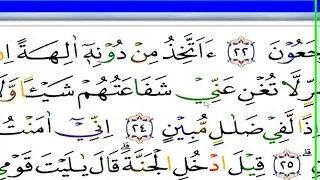 جَعُوْنَ ٢٢ ءَاَتَّخِذُ مِنْ دُوْنِهٖٓ اٰلِهَةً
لَّا تُغْنِ عَنِّيْ شَفَاعَتُهُمْ شَيْـًٔا وَّلَا
لَّفِيْ ضَلٰلٍ مُّبِيْنٍ ٢٤ اِنِّيْٓ اٰمَنْتُ
٢٥ قِيْلَ ادْخُلِ الْجَنَّةَ ۗ قَالَ يٰلَيْتَ قَوْمِيْ